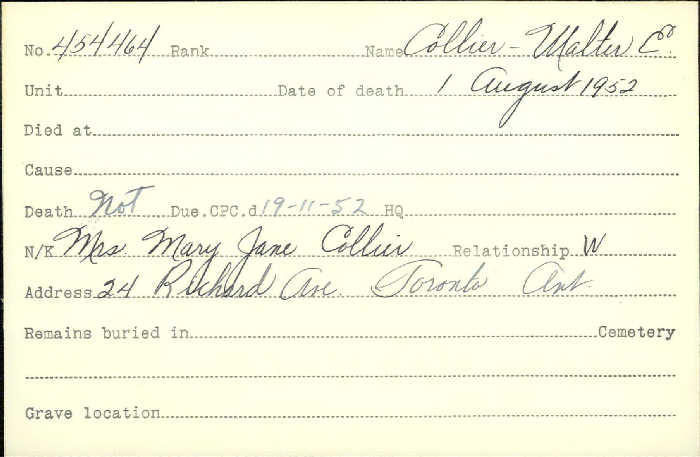 No. 454464 Rank Name Collier - Walter E.
Unit Date of death 1 August 1952
Died at
Cause
Death Not Due. CPC. d 19-11-52 HQ
N/K Mrs Mary Jane Collier Relationship W
Address 24 Richard Ave. Toronto Ont.
Remains buried in Cemetery
Grave location